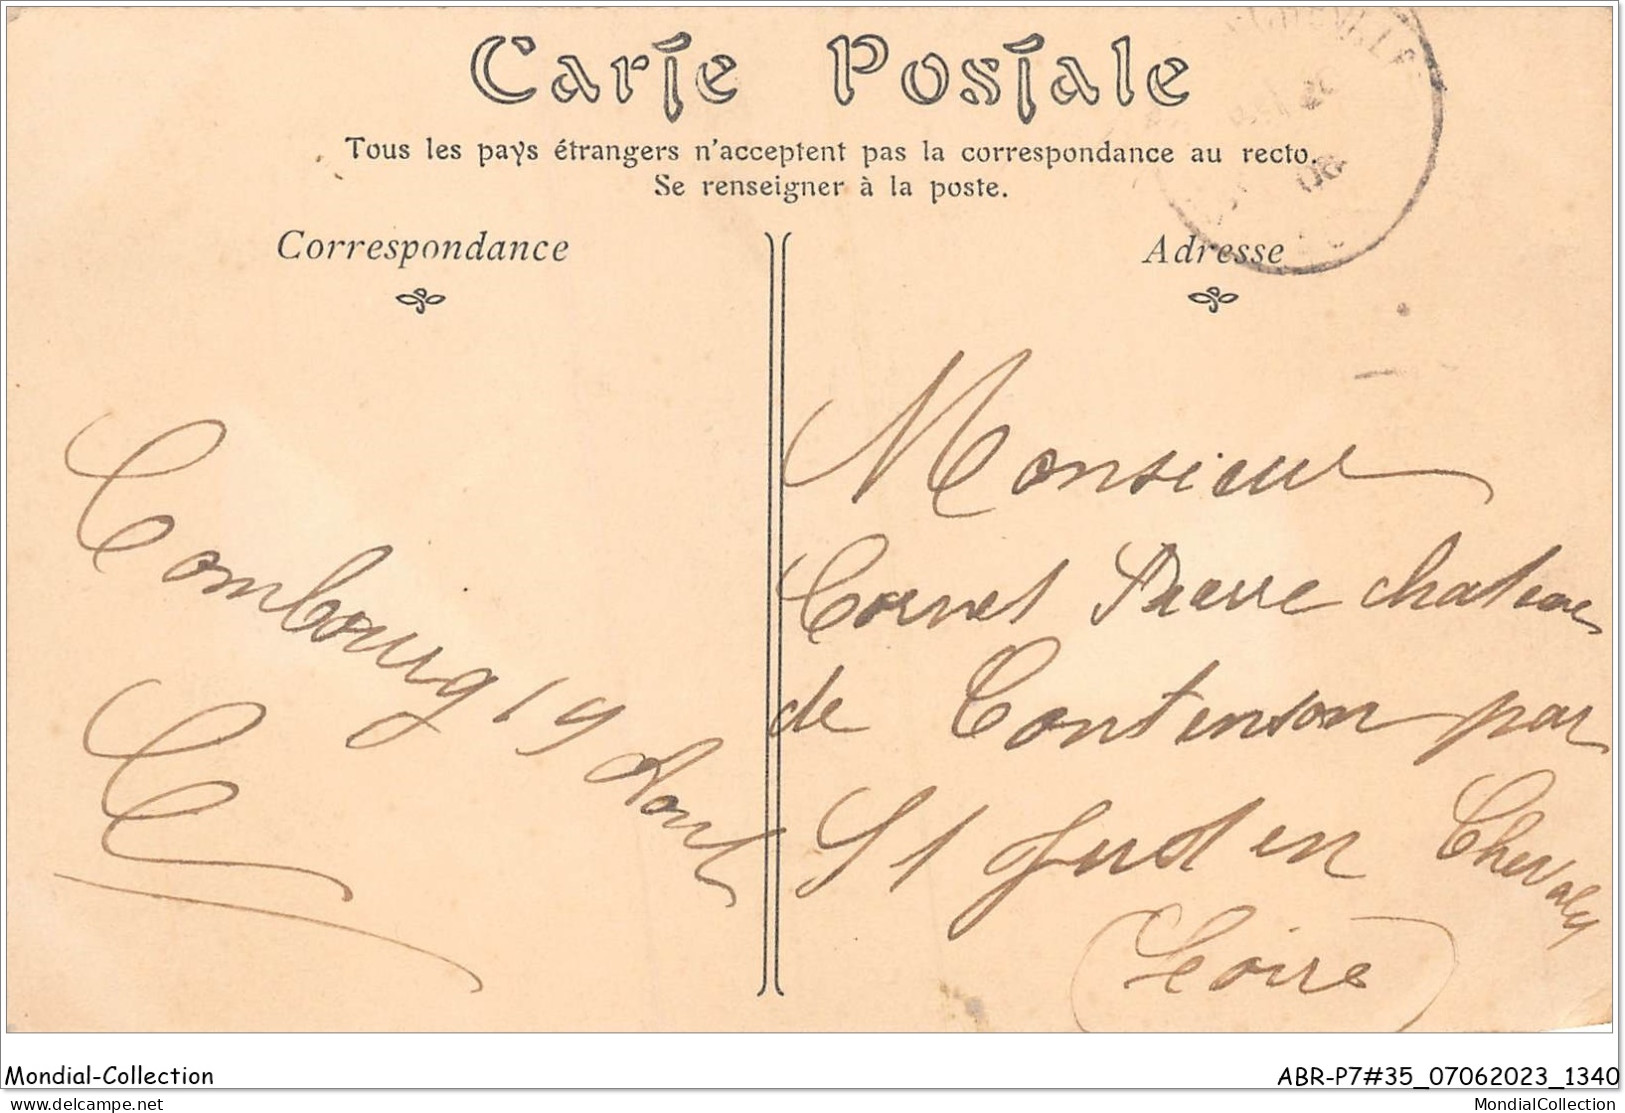 Carte Postale
Tous les pays étrangers n'acceptent pas la correspondance au recto.
Se renseigner à la poste.
Correspondance
Adresse
08
Combourg 19 Aout
Monsieur
Cornet Pierre chateau
de Contenson par
St Just en Chevalet
Loire
Mondial-Collection
ABR-P7#35_07062023_1340
delcampe.net
MondialCollection